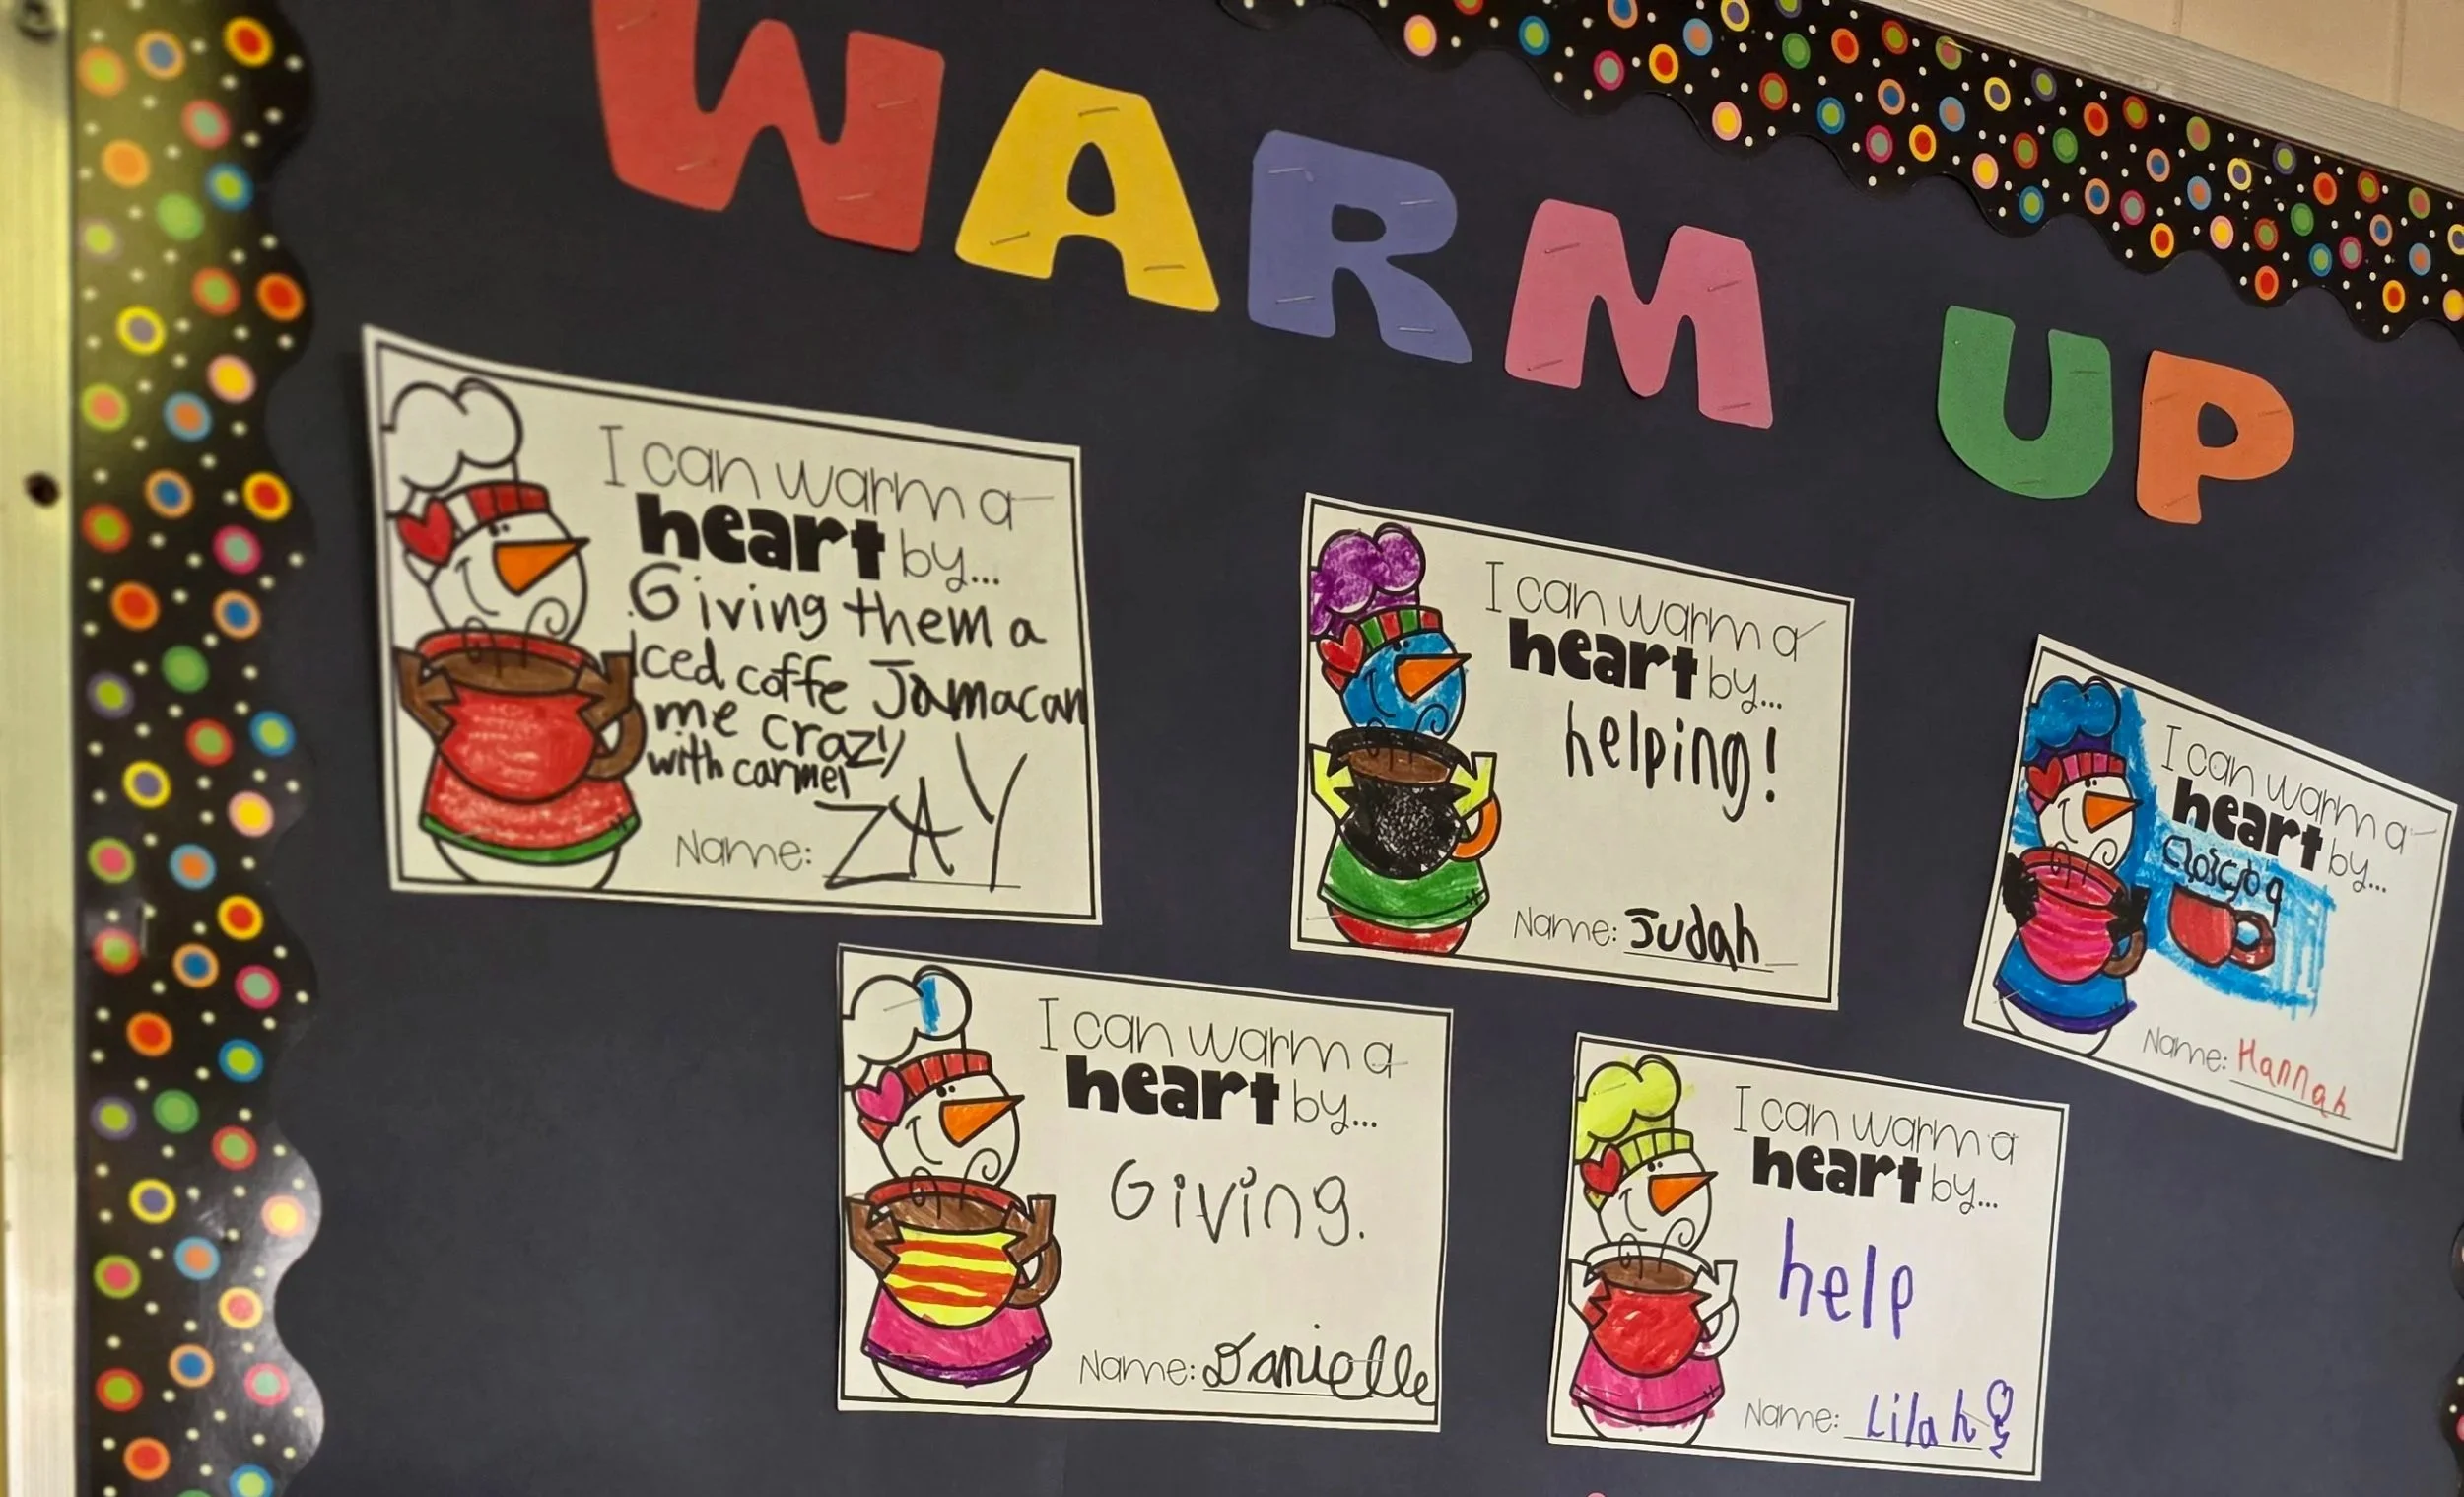 WARM UP
I can warm a
heart by...
Giving them a
Iced coffe Jamacan
me crazy
with carmel
Name: ZAY
I can warm a
heart by...
helping!
Name: Judah
I can warm a
heart by...
Name: Hannah
I can warm a
heart by...
Giving.
Name: Danielle
I can warm a
heart by...
help
Name: Lilah